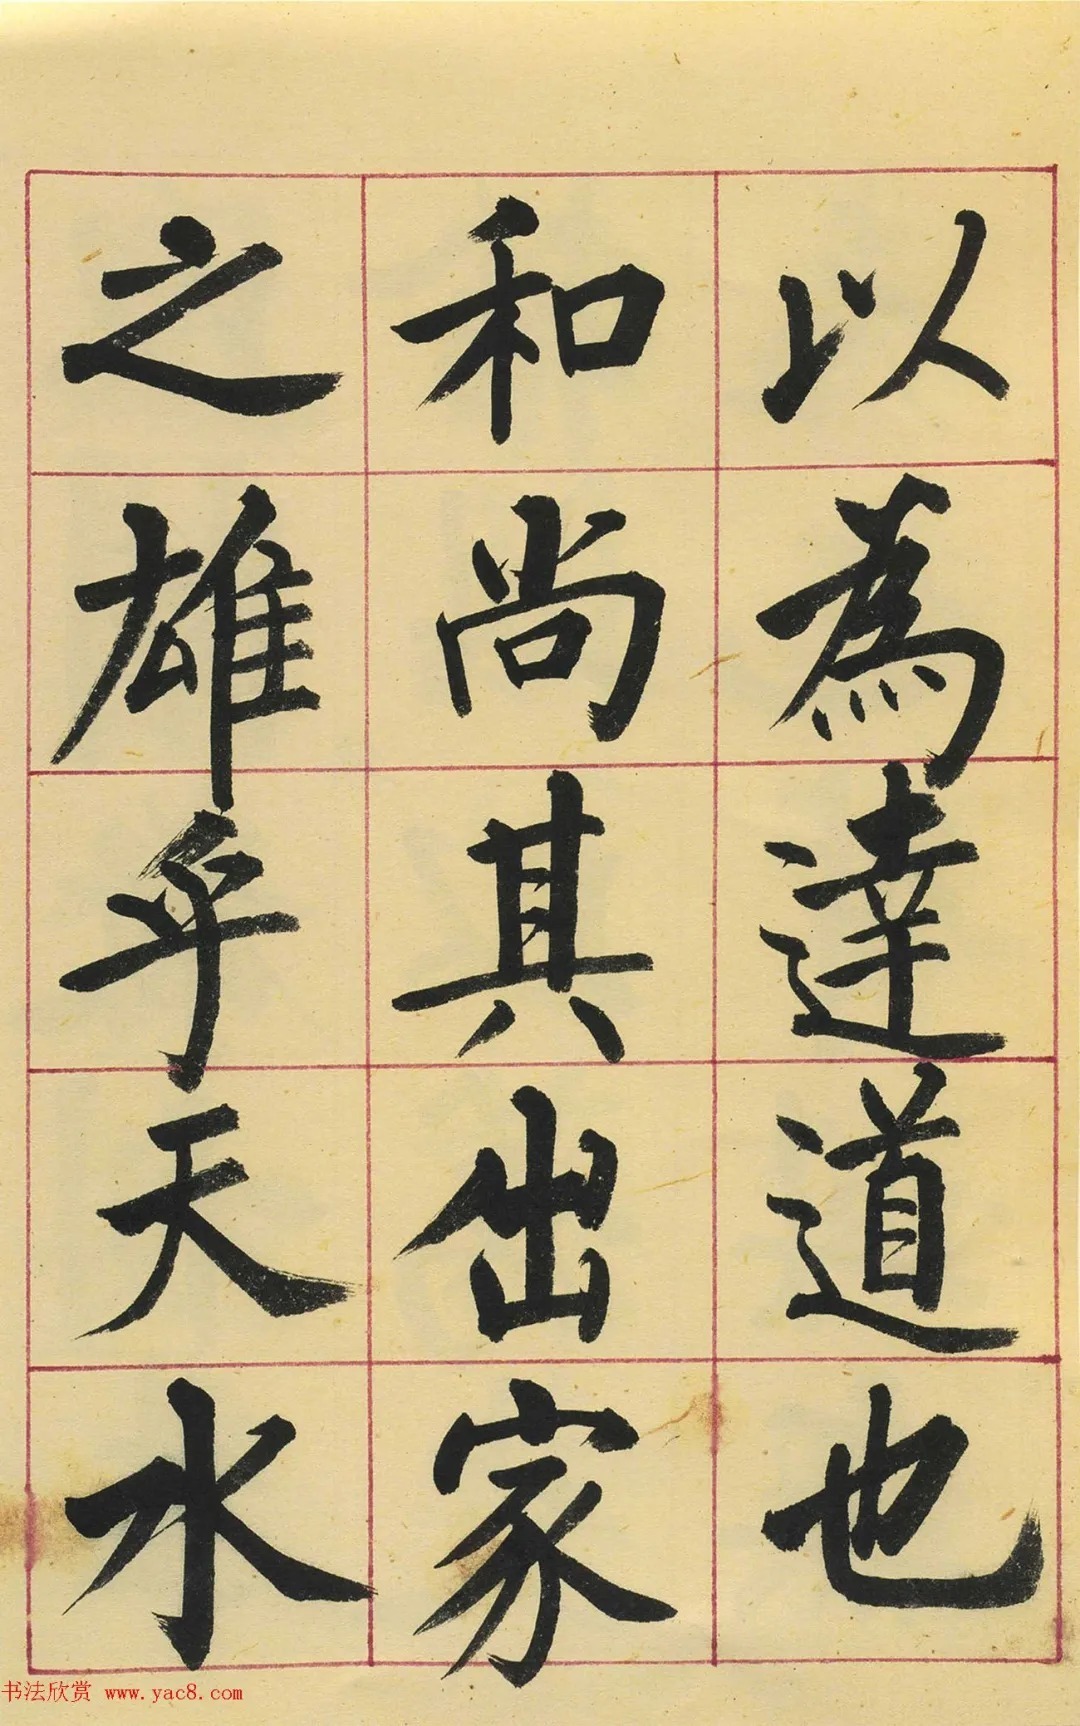 以為達道也
和尚其出家
之雄乎天水
书法欣赏 www.yac8.com